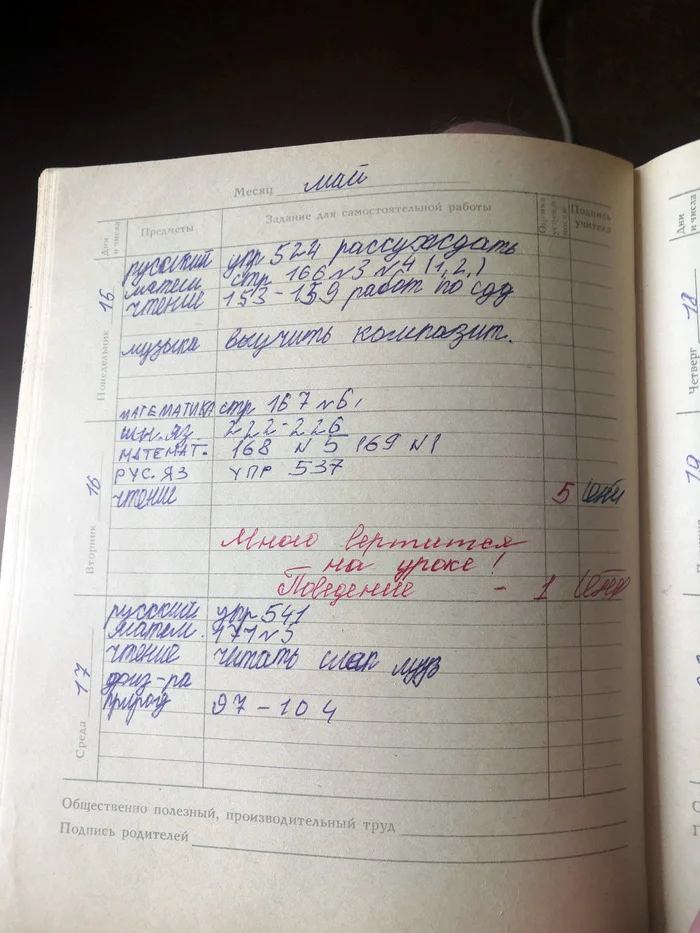 Месяц май
Дни и числа Предметы Задание для самостоятельной работы Оценка успеваемости Подпись учителя
Понедельник 15
русский упр 524 рассуждать
матем стр 166 №3 №4 (1,2,)
чтение 153-159 работ по
музыка выучить композит.
МАТЕМАТИКА стр 167 №6,
Вторник 16
222-226
МАТЕМАТ. 168 №5 169 №1
РУС. ЯЗ УПР 537
чтение 5
Много вертится
на уроке!
Поведение - 1
Среда 17
русский упр 541
матем. 171 №3
чтение читать
физ-ра
природ 97-104
Общественно полезный, производительный труд
Подпись родителей
Дни и числа
Четверг 18
19